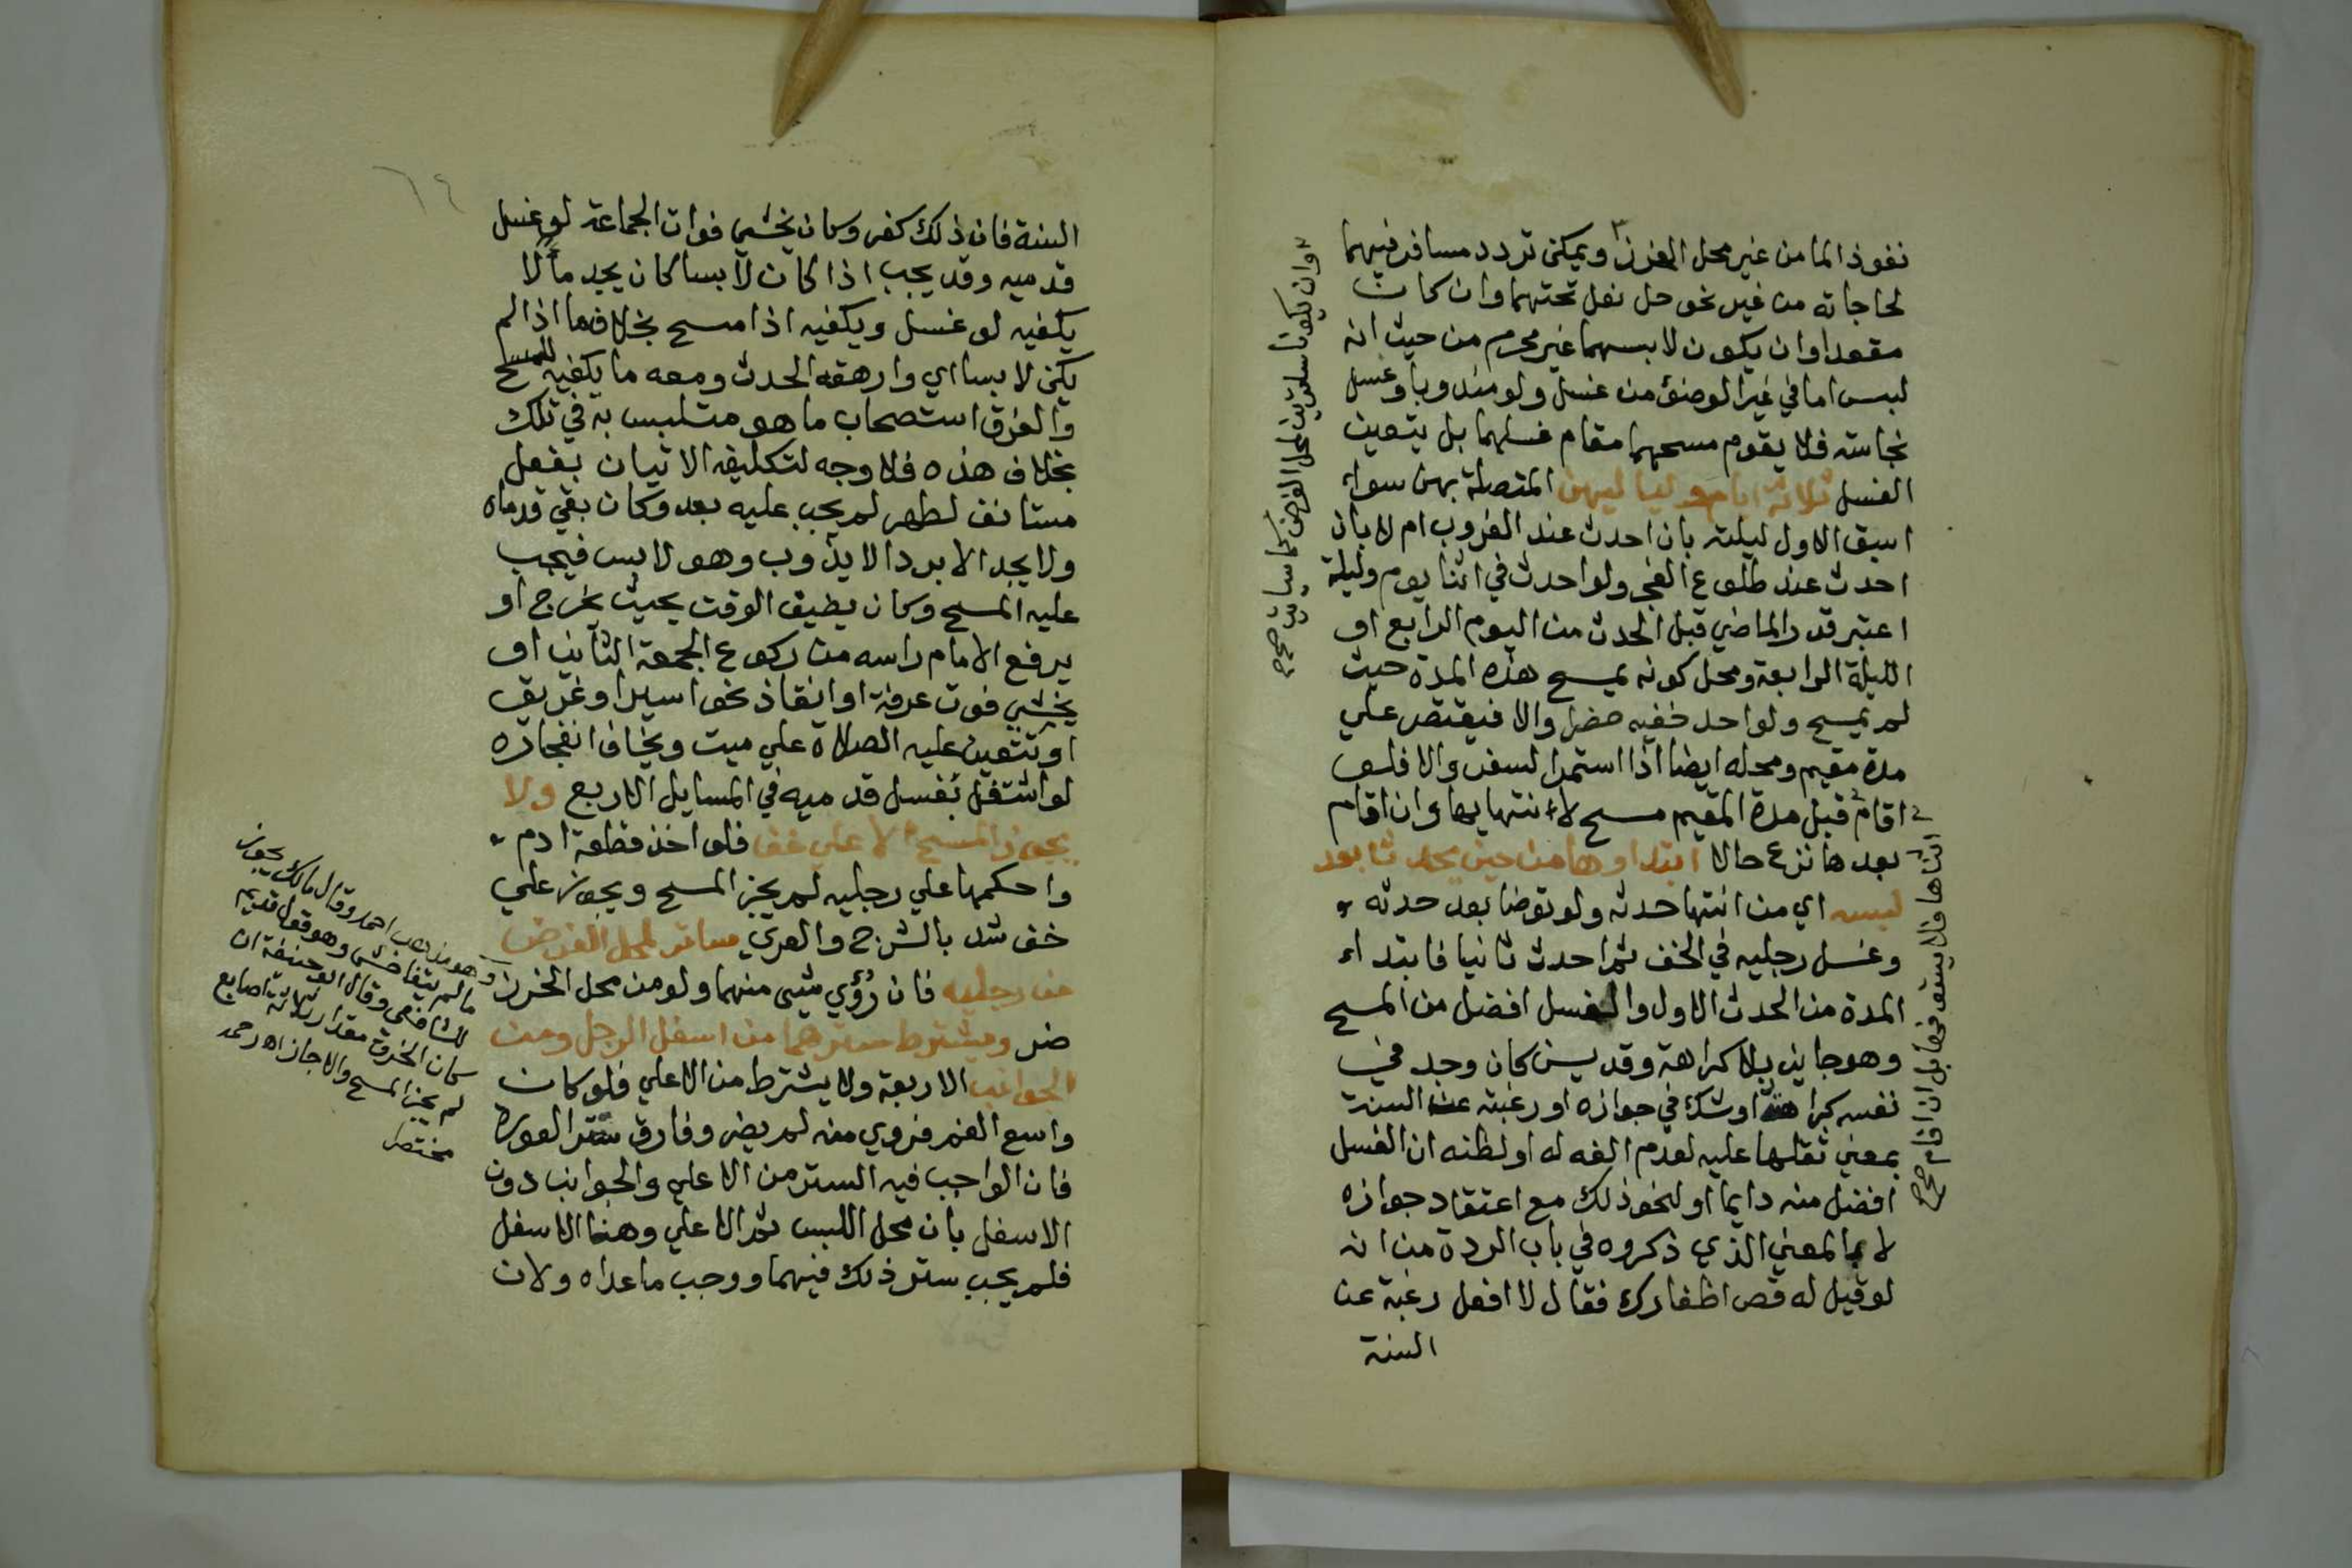 نفوذ الما من غير محل الخرز ويمكن تردد مسافر فيهما
لحاجاته من غير نحو حل نعل تحتهما وان كان
مقعدا وان يكون لابسهما غير محرم من حيث انه
لبس اما في غير الوضوء من غسل ولو مندوبا وغسل
نجاسة فلا يقوم مسحهما مقام غسلهما بل يتعين
الغسل ثلاثة ايام ولياليهن المتصلة بهن سواء
اسبق الاول ليلته بان احدث عند الغروب ام لا بان
احدث عند طلوع الفجر ولو احدث في اثنا يوم وليلة
اعتبر قدر الماضي قبل الحدث من اليوم الرابع او
الليلة الرابعة ومحل كونه يمسح هذه المدة حيث
لم يمسح ولو احد خفيه حضرا والا فيقتصر على
مدة مقيم ومحله ايضا اذا استمرا لسفر والا فلو
اقام قبل مدة المقيم مسح لانتهايها وان اقام
بعدها نزع حالا ابتداوها من حين يحدث بعد
لبسه اي من انتها حدثه ولو توضا بعد حدثه
وغسل رجليه في الخف ثم احدث ثانيا فابتداء
المدة من الحدث الاول والغسل افضل من المسح
وهو جايز بلا كراهة وقد يسن كان وجد في
نفسه كراهة او شك في جوازه او رغبته عن السنة
بمعني ثقلها عليه لعدم الفه له او لظنه ان الغسل
افضل منه دايما او لنحو ذلك مع اعتقاد جوازه
لا بالمعني الذي ذكروه في باب الردة من انه
لو قيل له قص اظفارك فقال لا افعل رغبة عن
السنة
وان يكونا ساترين لمحل الفرض كما سياتي صح
اثناها فلا يستوفها بل ان اقام صح
السنة فان ذلك كفر وكان يخشي فوات الجماعة لو غسل
قدميه وقد يجب اذا كان لابسا كان يجد ماء لا
يكفيه لو غسل ويكفيه اذا مسح بخلاف ما اذا لم
يكن لابسا اي وارهقه الحدث ومعه ما يكفيه للمسح
والفرق استصحاب ما هو متلبس به في تلك
بخلاف هذه فلا وجه لتكليفه الاتيان بفعل
مستانف لطهر لم يجب عليه بعد وكان بقي قدماه
ولا يجد الا بردا لا يذوب وهو لابس فيجب
عليه المسح وكان يضيق الوقت بحيث يخرج او
يرفع الامام راسه من ركوع الجمعة الثاني او
يخشي فوت عرفة او انقاذ نحو اسير او غريق
او تتعين عليه الصلاة علي ميت ويخاف انفجاره
لو اشتغل بغسل قدميه في المسايل الاربع ولا
يجوز المسح الا علي خف فلو اخذ قطعة ادم
واحكمها علي رجليه لم يجز المسح ويجوز علي
خف شد بالشرج والعري ساتر لمحل الفرض
من رجليه فان رؤي شيى منهما ولو من محل الخرز
ضر ويشترط سترهما من اسفل الرجل ومن
الجوانب الاربعة ولا يشترط من الاعلي فلو كان
واسع الفم فروي منه لم يضر وفارق ستر العورة
فان الواجب فيه الستر من الاعلي والجوانب دون
الاسفل بان محل اللبس ثم الاعلي وهنا الاسفل
فلم يجب ستر ذلك فيهما ووجب ما عداه ولان
وهو مذهب احمد وقال مالك يجوز
ما لم يتفاحش وهو قول قديم
للشافعي وقال ابو حنيفة ان
كان الخرق مقدار ثلاثة اصابع
لم يجز المسح والا جاز اه رحمه
مختصر
٦٤